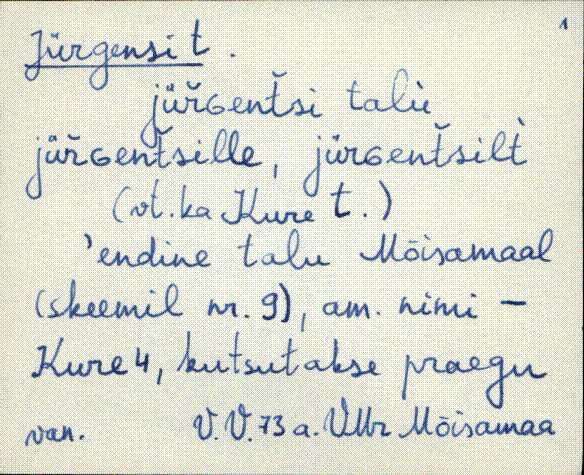 1
Jürgensi t.
jüřGent̆si talù
jüřGent̆sille, jürGent̆silt̀
(vt. ka Kure t.)
'endine talu Mõisamaal
(skeemil nr. 9), am. nimi –
Kure 4, kutsutakse praegu
van. V. V. 73 a. VMr Mõisamaa